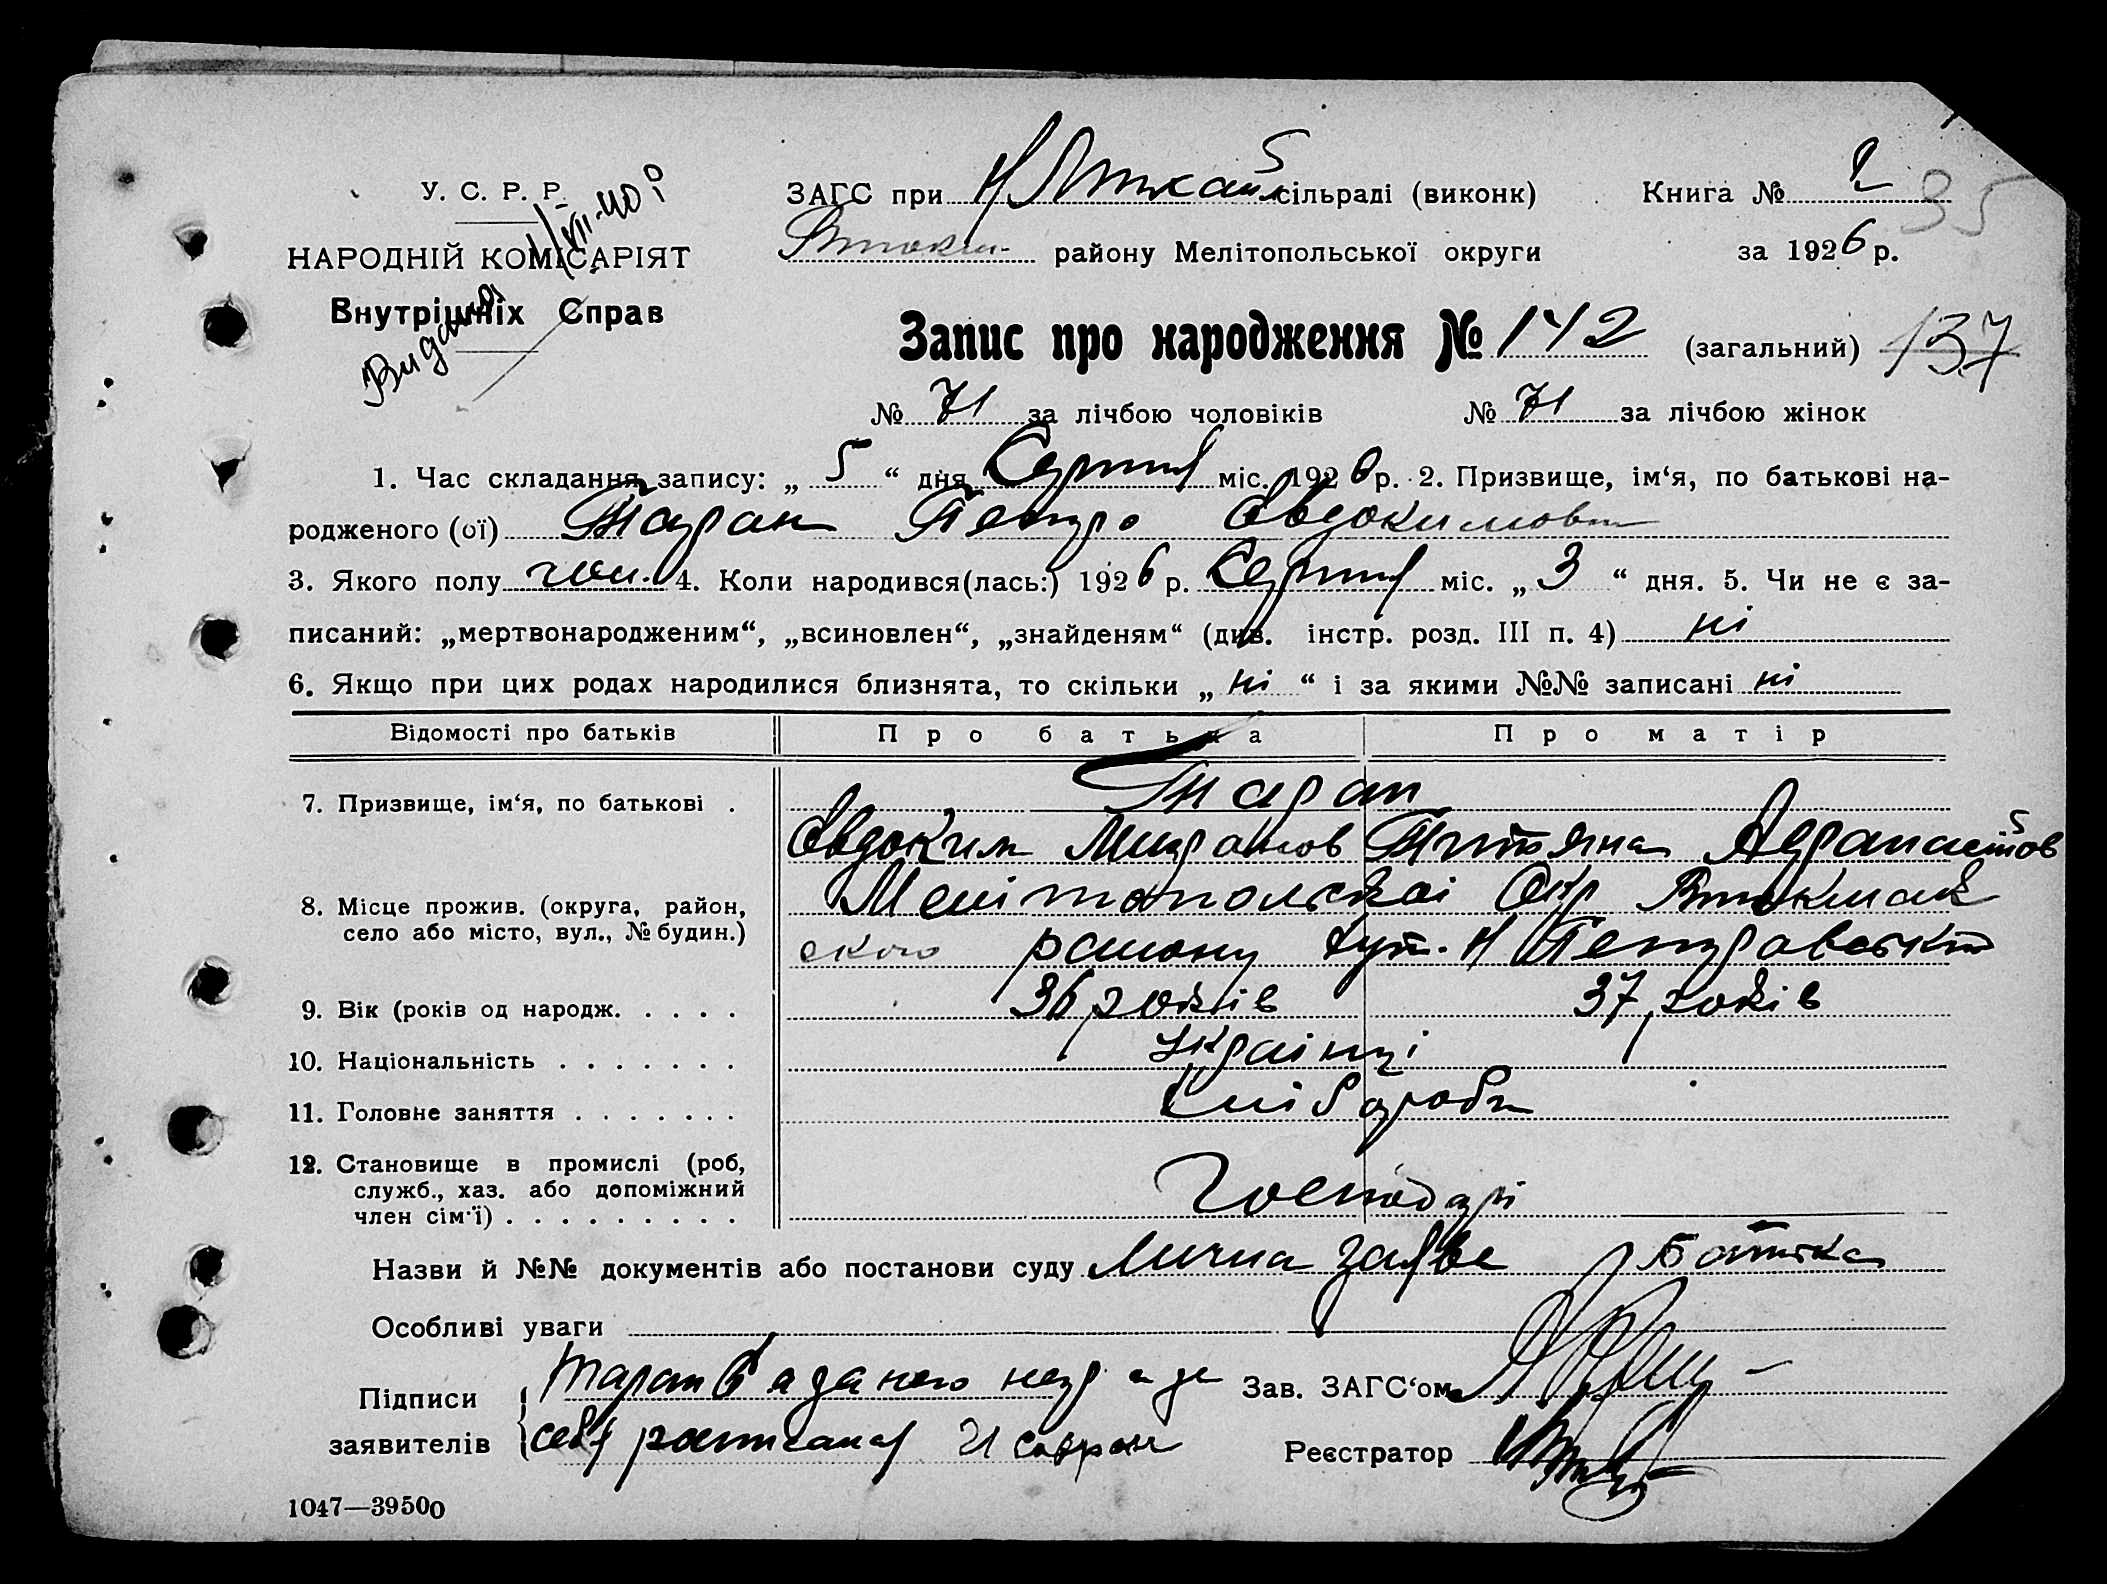 У. С. Р. Р.
НАРОДНІЙ КОМІСАРІЯТ
Внутрішніх Справ
ЗАГС при сільраді (виконк)
району Мелітопольської округи
Книга №
35
за 1926 р.
Запис про народження № 142 (загальний) 137
№ 71 за лічбою чоловіків № 71 за лічбою жінок
1. Час складання запису: „ 5 “ дня Серпня міс. 1926 р. 2. Призвище, ім‘я, по батькові на-
родженого (ої) Таран Петро Овдокимов
3. Якого полу чол. 4. Коли народився(лась:) 1926 р. Серпня міс. „ 3 “ дня. 5. Чи не є за-
писаний: „мертвонародженим“, „всиновлен“, „знайденям“ (див. інстр. розд. III п. 4) ні
6. Якщо при цих родах народилися близнята, то скільки „ ні “ і за якими №№ записані ні
Відомості про батьків Про батька Про матір
7. Призвище, ім‘я, по батькові . Таран
Овдоким Миронов Титяна
8. Місце прожив. (округа, район, село або місто, вул., № будин.) Мелітопольскоі Окр
ского району хут. Н Петровськ
9. Вік (років од народж. . . . . 36 років 37 років
10. Національність . . . . . . . Украінці
11. Головне заняття . . . . . . . Хліборобн
12. Становище в промислі (роб,
служб., хаз. або допоміжний
член сім'ї) . . . . . . . . . Господарі
Назви й №№ документів або постанови суду Лична заява Батька
Особливі уваги
Підписи заявителів Таран а за него
себя росписался
Зав. ЗАГС‘ом
Реєстратор
1047—39500